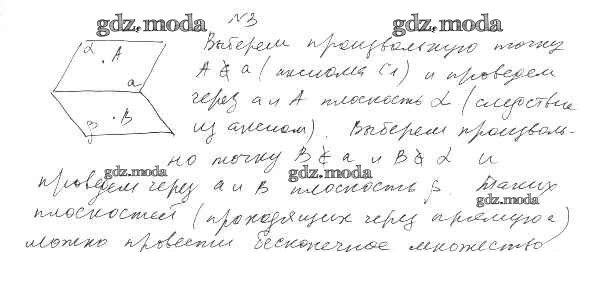 N3
gdz.moda gdz.moda
Выберем произвольную точку
α A
A ∉ a (аксиома C1) и проведем
a
через a и A плоскость α (следствие
B
β
из аксиом). Выберем произволь-
но точку B ∉ a и B ∉ α и
gdz.moda gdz.moda
проведем через a и B плоскость β. Таких
gdz.moda
плоскостей (проходящих через прямую a)
можно провести бесконечное множество